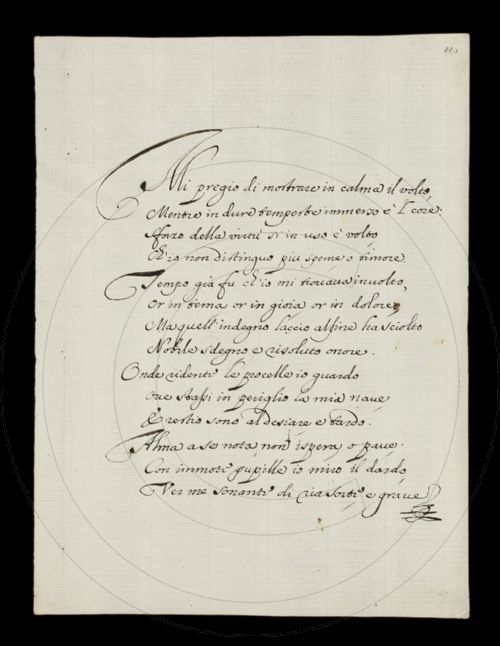 110
Mi pregio di mostrare in calma il volto
Mentre in dure tempeste immerso è 'l core:
sforzo della virtù ch'in uso è volto
Ch'io non distinguo più speme o timore
Tempo già fu ch'io mi trovava involto,
or in tema or in gioia or in dolore,
Ma quell'indegno laccio alfine ha sciolto
Nobile sdegno e risoluto onore.
Onde ridenti le procelle io guardo
ove stassi in periglio la mia nave
E restio sono al desiare e tardo.
Alma a se nota non ispera, o pave.
Con immote pupille io miro il dardo
Ver me sonante di ria sorte e grave